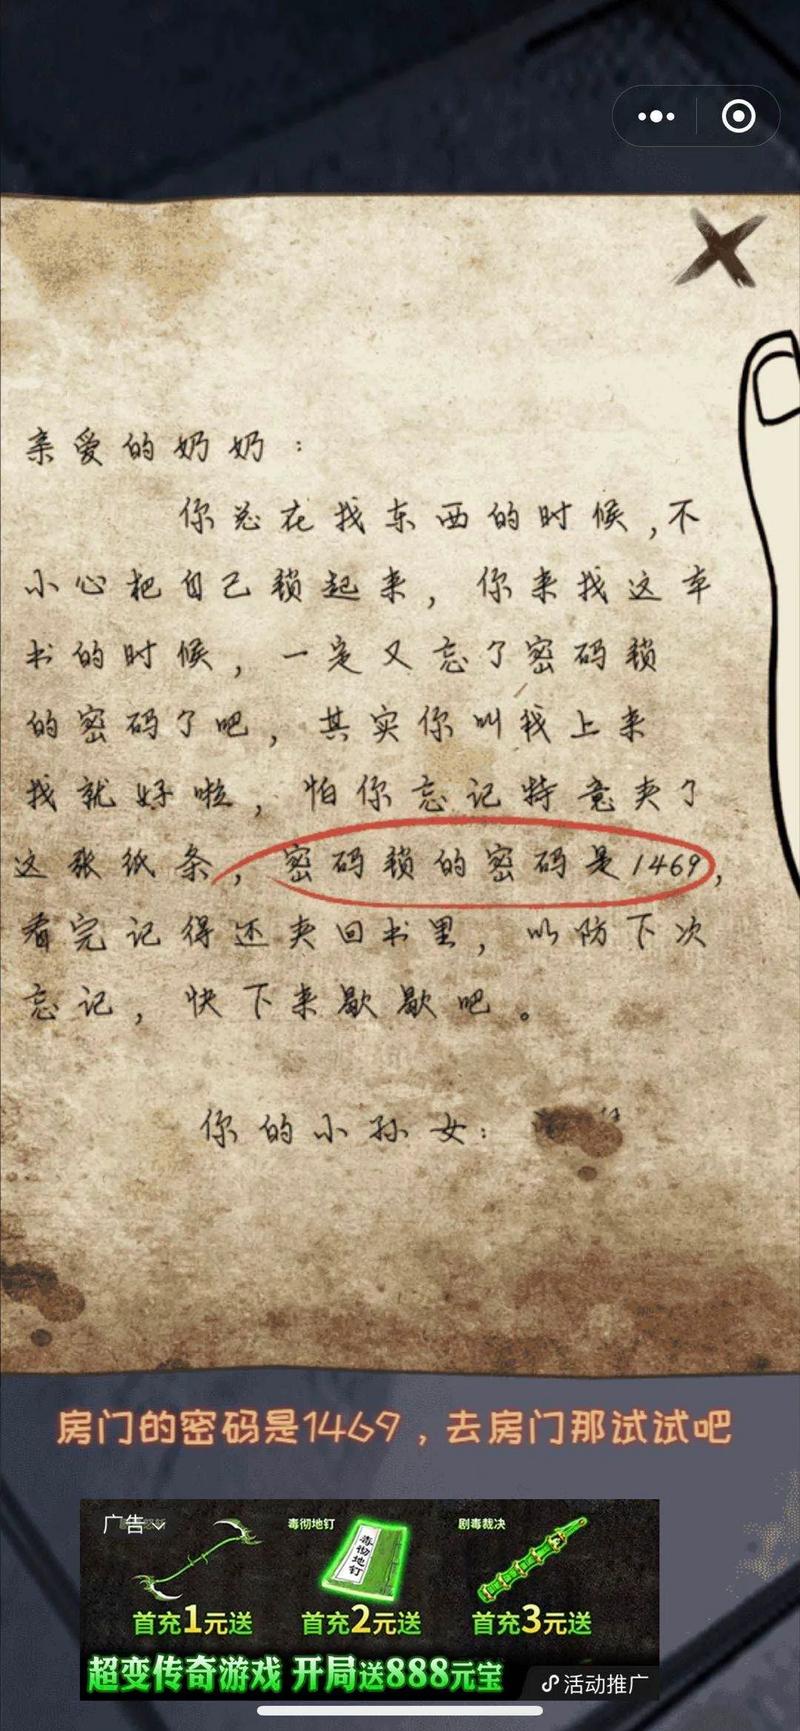 亲爱的奶奶：
你总在找东西的时候,不
小心把自己锁起来，你来找这本
书的时候，一定又忘了密码锁
的密码了吧，其实你叫我上来
找就好啦，怕你忘记特意夹了
这张纸条，密码锁的密码是1469，
看完记得还夹回书里，以防下次
忘记，快下来歇歇吧。
你的小孙女：
房门的密码是1469，去房门那试试吧
广告
毒彻地钉
剧毒裁决
毒彻地钉
首充1元送
首充2元送
首充3元送
超变传奇游戏 开局送888元宝
活动推广